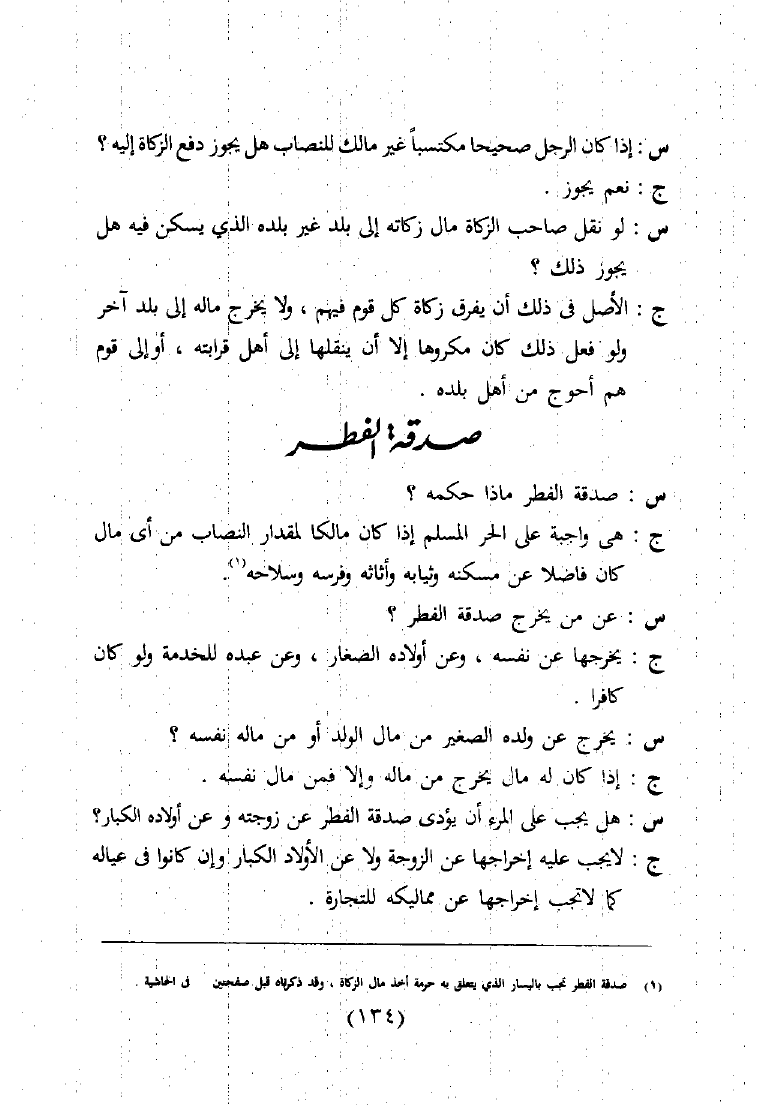 س : إذا كان الرجل صحيحا مكتسباً غير مالك للنصاب هل يجوز دفع الزكاة إليه ؟
ج : نعم يجوز .
س : لو نقل صاحب الزكاة مال زكاته إلى بلد غير بلده الذي يسكن فيه هل
يجوز ذلك ؟
ج : الأصل فى ذلك أن يفرق زكاة كل قوم فيهم ، ولا يخرج ماله إلى بلد آخر
ولو فعل ذلك كان مكروها إلا أن ينقلها إلى أهل قرابته ، أوإلى قوم
هم أحوج من أهل بلده .
صدقة الفطر
س : صدقة الفطر ماذا حكمه ؟
ج : هى واجبة على الحر المسلم إذا كان مالكا لمقدار النصاب من أى مال
كان فاضلا عن مسكنه وثيابه وأثاثه وفرسه وسلاحه(١).
س : عن من يخرج صدقة الفطر ؟
ج : يخرجها عن نفسه ، وعن أولاده الصغار ، وعن عبده للخدمة ولو كان
كافرا .
س : يخرج عن ولده الصغير من مال الولد أو من ماله نفسه ؟
ج : إذا كان له مال يخرج من ماله وإلا فمن مال نفسه .
س : هل يجب على المرء أن يؤدى صدقة الفطر عن زوجته و عن أولاده الكبار؟
ج : لايجب عليه إخراجها عن الزوجة ولا عن الأولاد الكبار وإن كانوا فى عياله
كما لاتجب إخراجها عن مماليكه للتجارة .
(١) صدقة الفطر تجب باليسار الذي يتعلق به حرمة أخذ مال الزكاة ، وقد ذكرناه قبل صفحتين فى الحاشية .
(١٣٤)